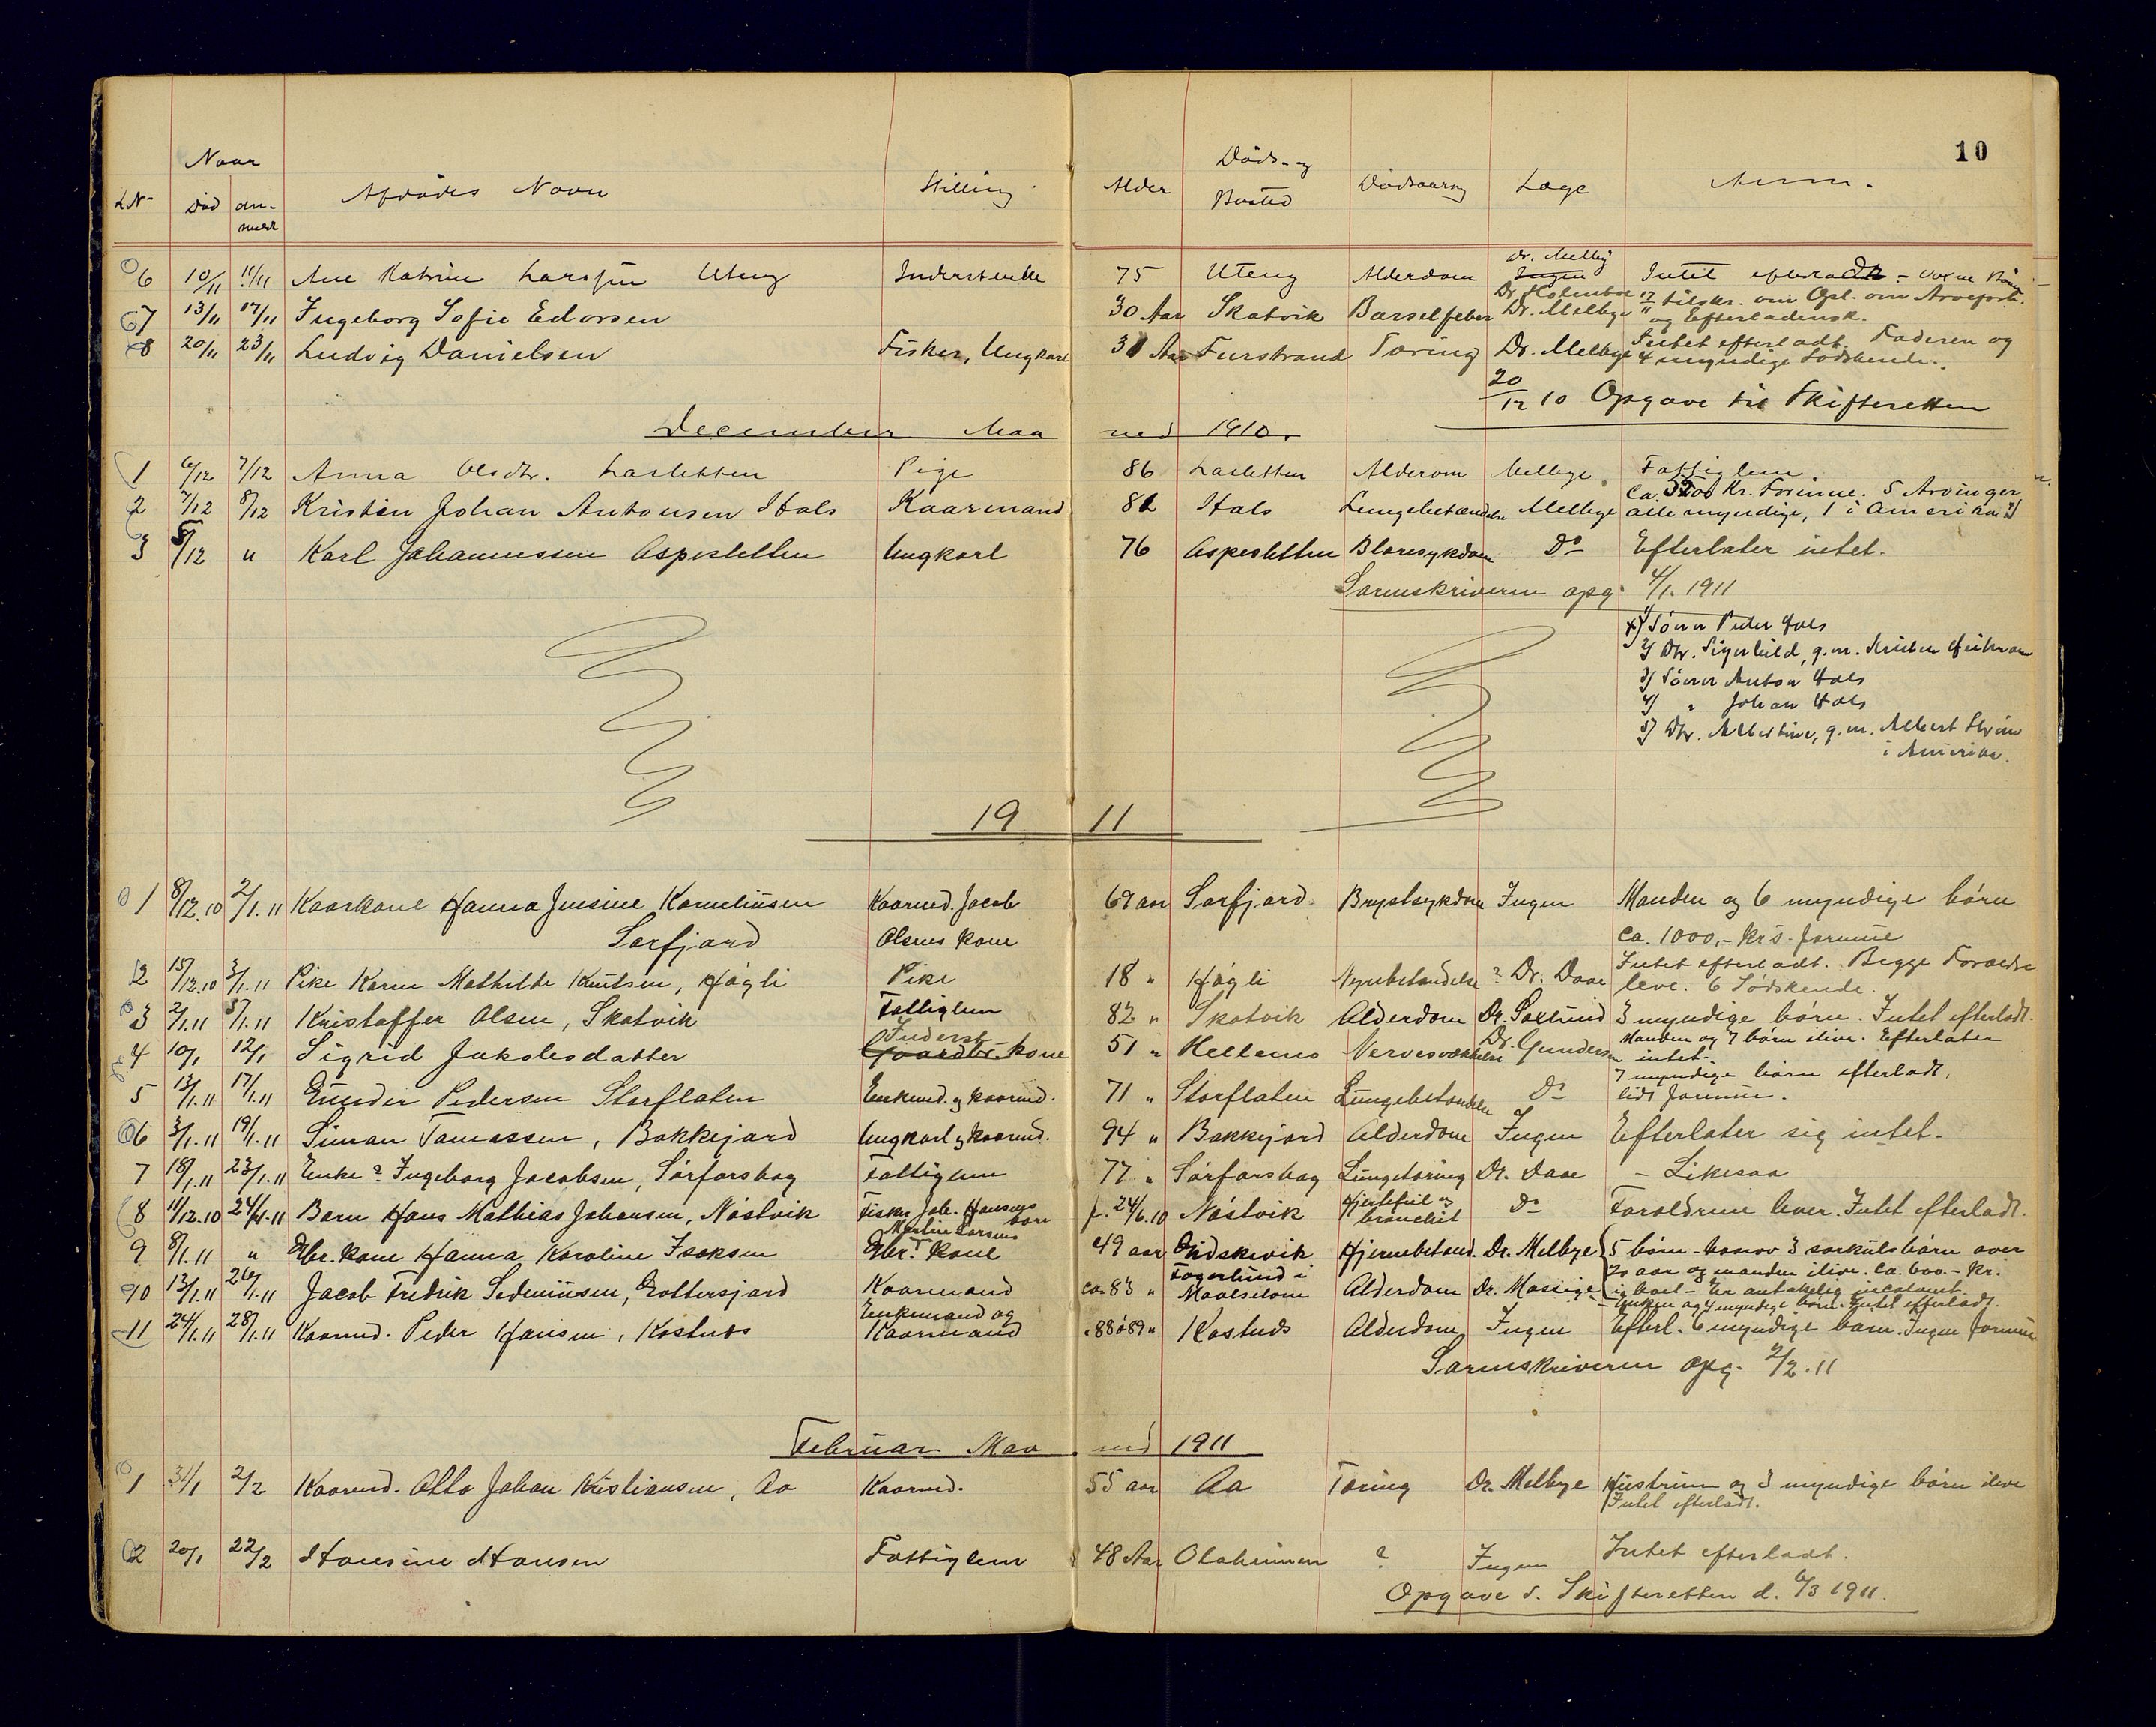 10
Naar
L.N. Død an-meldt Afdødes Navn Stilling Alder Døds- og Bosted Dødsaarsag Læge Anm.
6 10/11 11/11 Ane Katrine Larssen Uteng Inderstenke 75 Uteng Alderdom Dr. Melbye Intet efterladt - voxne Børn
7 13/11 17/11 Ingeborg Sofie Edvorsen 30 Aar Skatvik Barselfeber Dr. Holmboe Dr. Melbye 17/11 tilskr. om Opl. om Arveforh. og Efterladensk.
8 20/11 23/11 Ludvig Danielsen Fisker, Ungkarl 31 Aar Furstrand Tæring Dr. Melbye Intet efterladt. Faderen og 4 myndige Sødskende.
20/12 10 Opgave til Skifteretten
December Maaned 1910.
1 6/12 7/12 Anna Olsdtr. Larsletten Pige 86 Larsletten Alderdom Melbye Fattiglem
2 7/12 8/12 Kristin Johan Antonsen Hals Kaarmand 82 Hals Lungebetændelse Melbye Ca. Kr. Formue. 5 Arvinger alle myndige, 1 i Amerika
3 5/12 " Karl Johannessen Aspesletten Ungkarl 76 Aspesletten Blæresykdom Do Efterlater intet.
Sorenskriveren opg. 4/1. 1911
1) Sønn Peder Hals
2) Dtr. Sigerhild, g.m.
3) Sønn Anton Hals
4) " Johan Hals
5) Dtr. Albertine, g.m. Albert Strøm
i Amerika.
1911
1 8/12.10 2/1.11 Kaarkone Hanna Jensine Korneliusen Kaarmd. Jacob 69 aar Sørfjord Brystsykdom Ingen Manden og 6 myndige børn
Sørfjord Olsens kone ca. 1000,- kr's. formue
2 15/12.10 3/1.11 Pike Karen Mathilde Knutsen, Høgli Pike 18 " Høgli Nyrebetændelse? Dr. Daae Intet efterladt. Begge Forældre leve. 6 Sødskende.
3 2/1.11 5/1.11 Kristoffer Olsen, Skatvik Fattiglem 82 " Skatvik Alderdom Dr. Soxlund 3 myndige børn. Intet efterladt.
4 10/1 12/1 Sigrid Jakobsdatter Inderst kone 51 " Hellemo Nervesvækkelse Dr. Gundersen Manden og 7 børn ilive. Efterlater intet.
5 13/1.11 17/1.11 Gunder Pedersen Storflaten Enkemd. og kaarmd. 71 " Storflaten Lungebetændelse Do 7 myndige børn efterladt, lidt formue.
6 3/1.11 19/1.11 Simon Tomassen, Bakkejord Ungkarl og kaarmd. 94 " Bakkejord Alderdom Ingen Efterlater sig intet.
7 18/1.11 23/1.11 Enke? Ingeborg Jacobsen, Sørforsbag Fattiglem 77 " Sørforsbag Lungetæring Dr. Daae - Likesaa
8 11/12.10 24/1.11 Barn Hans Mathias Johansen, Nøstvik Fisker Joh. Hansens barn f. 24/6.10 Nøstvik Hjertefeil og bronchit Do Forældrene lever. Intet efterladt.
9 8/1.11 " Gbr. kone Hanna Karoline Isaksen Martin Larsens Gbr. kone 49 aar Gudskevik Hjernebetænd. Dr. Melbye 5 børn - hvorav 3 særkulsbørn over 20 aar og manden ilive. Ca. 600.- kr. i boet - Er antakelig
10 13/1.11 26/1.11 Jacob Fredrik Sedeniusen, Goltersjord Kaarmand ca. 83 " Fagerlund i Maalselven Alderdom Dr. - Enken og 4 myndige børn. Intet efterladt.
11 24/1.11 28/1.11 Kaarmd. Peder Hansen, Kostnes Enkemand og Kaarmand 88 à 89 " Kostnes Alderdom Ingen Efterl. 6 myndige børn. Ingen formue
Sorenskriveren opg. 2/2.11
Februar Maaned 1911
1 31/1 2/2 Kaarmd. Otto Johan Kristiansen, Aa Kaarmd. 55 aar Aa Tæring Dr. Melbye Hustruen og 3 myndige børn ilive
Intet efterladt.
2 20/1 22/2 Hansine Hansen Fattiglem 48 Aar Olaheimen ? Ingen Intet efterladt.
Opgave t. Skifteretten d. 6/3 1911.